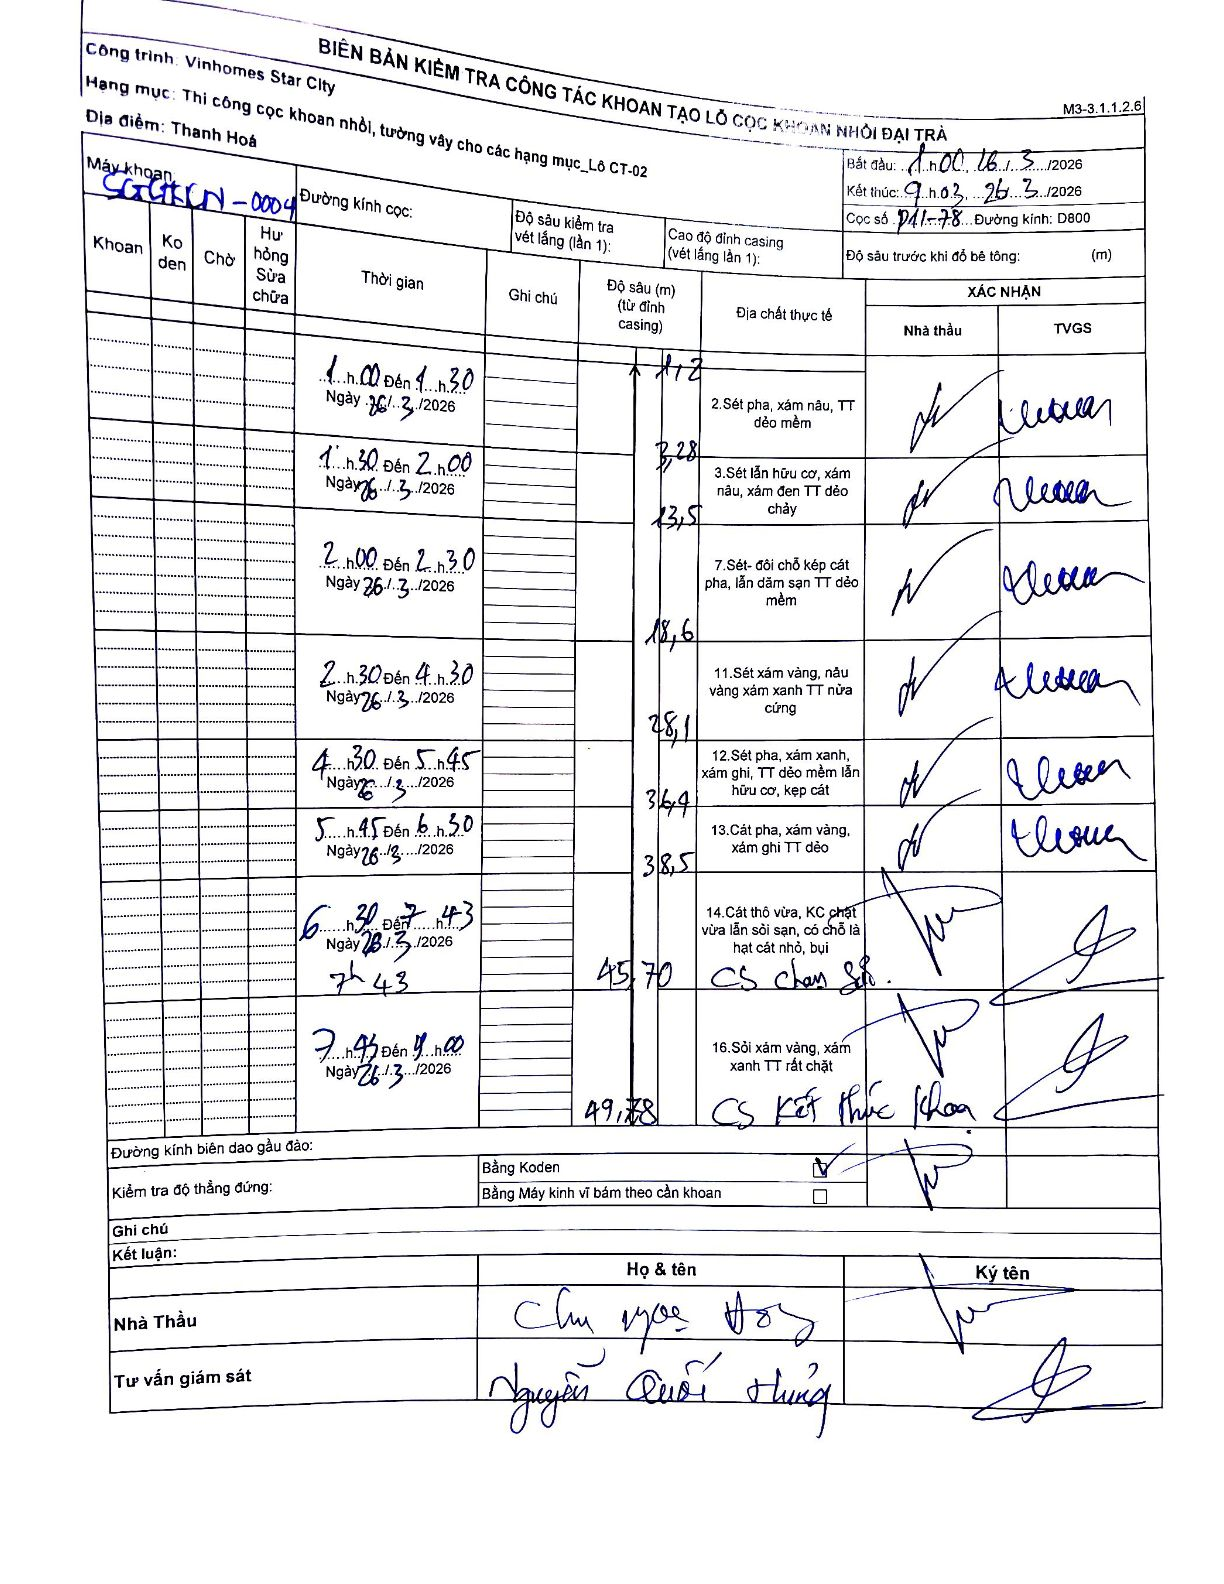 BIÊN BẢN KIỂM TRA CÔNG TÁC KHOAN TẠO LỖ CỌC KHOAN NHỒI ĐẠI TRÀ
M3-3.1.1.2.6
Công trình: Vinhomes Star City
Hạng mục: Thi công cọc khoan nhồi, tường vây cho các hạng mục_Lô CT-02
Địa điểm: Thanh Hoá
Bắt đầu: 1 h 00, 26/3/2026
Kết thúc: 9 h 03, 26/3/2026
Máy khoan
Đường kính cọc:
Độ sâu kiểm tra vét lắng (lần 1):
Cao độ đỉnh casing (vét lắng lần 1):
Cọc số P11-78 Đường kính: D800
Độ sâu trước khi đổ bê tông: (m)
Khoan
Ko den
Chờ
Hư hỏng Sửa chữa
Thời gian
Ghi chú
Độ sâu (m) (từ đỉnh casing)
Địa chất thực tế
XÁC NHẬN
Nhà thầu
TVGS
1,2
1 h 00 Đến 1 h 30
Ngày 26/3/2026
2.Sét pha, xám nâu, TT dẻo mềm
3,28
1 h 30 Đến 2 h 00
Ngày 26/3/2026
3.Sét lẫn hữu cơ, xám nâu, xám đen TT dẻo chảy
13,5
2 h 00 Đến 2 h 30
Ngày 26/3/2026
7.Sét- đôi chỗ kép cát pha, lẫn dăm sạn TT dẻo mềm
18,6
2 h 30 Đến 4 h 30
Ngày 26/3/2026
11.Sét xám vàng, nâu vàng xám xanh TT nửa cứng
28,1
4 h 30 Đến 5 h 45
Ngày 26/3/2026
12.Sét pha, xám xanh, xám ghi, TT dẻo mềm lẫn hữu cơ, kẹp cát
36,4
5 h 45 Đến 6 h 30
Ngày 26/3/2026
13.Cát pha, xám vàng, xám ghi TT dẻo
38,5
6 h 30 Đến 7 h 43
Ngày 26/3/2026
7h 43
14.Cát thô vừa, KC chặt vừa lẫn sỏi sạn, có chỗ là hạt cát nhỏ, bụi
45,70
CS chạm sỏi.
7 h 43 Đến 9 h 00
Ngày 26/3/2026
16.Sỏi xám vàng, xám xanh TT rất chặt
49,78
CS Kết thúc khoan
Đường kính biên dao gầu đào:
Kiểm tra độ thẳng đứng:
Bằng Koden
Bằng Máy kinh vĩ bám theo cần khoan
Ghi chú
Kết luận:
Họ & tên
Ký tên
Nhà Thầu
Chu Ngọc
Tư vấn giám sát
Nguyễn Quốc Hưng